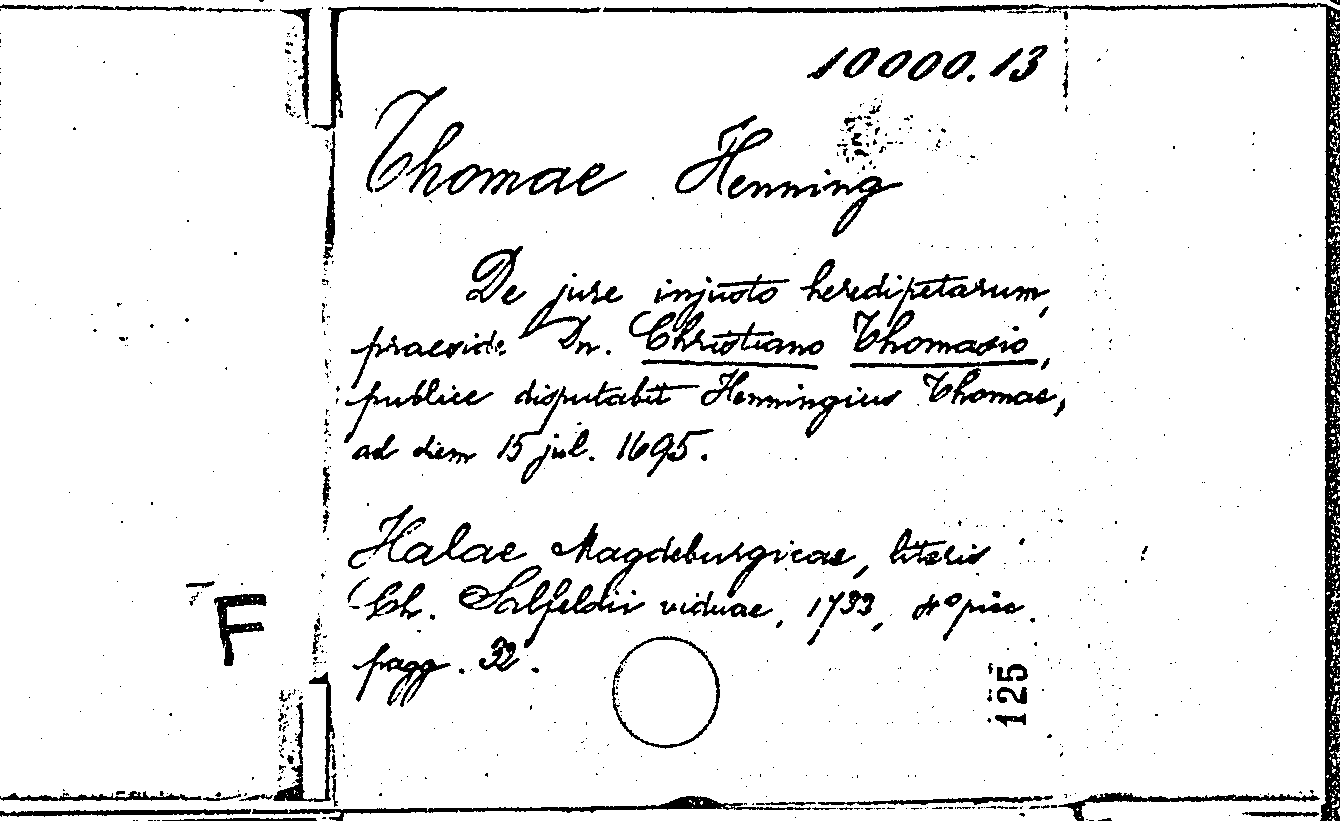 10000.13
Thomae Henning
De jure injusto heredipetarum,
praeside Dn. Christiano Thomasio,
publice disputabit Henningius Thomae,
ad diem 15 jul. 1695.
Halae Magdeburgicae, literis
Ch. Salfeldii viduae, 1733, 4° picc.
pagg. 32.
F
125